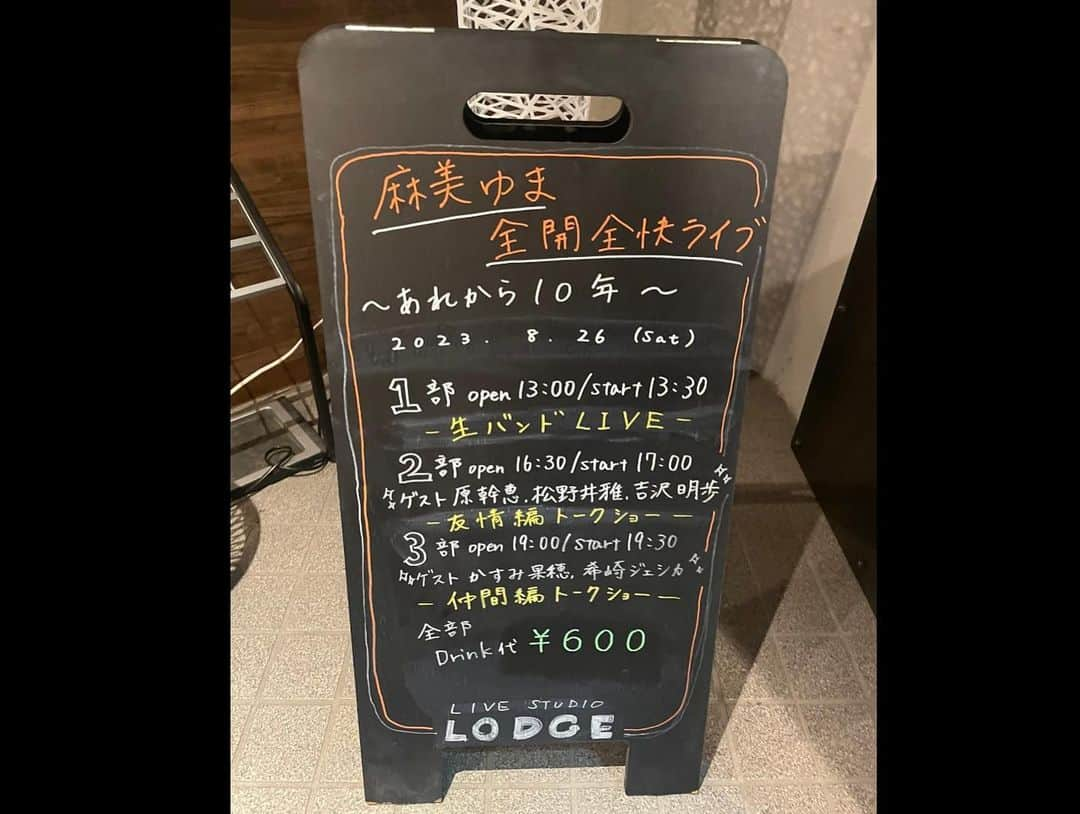 麻美ゆま
全開全快ライブ
～あれから10年～
2023. 8. 26 (Sat)
1部 open 13:00/start 13:30
-生バンドLIVE-
2部 open 16:30/start 17:00
ゲスト 原幹恵.松野井雅.吉沢明歩
-友情編トークショー-
3部 open 19:00/start 19:30
ゲスト かすみ果穂.希崎ジェシカ
-仲間編トークショー-
全部
Drink代 ¥600
LIVE STUDIO
LODGE